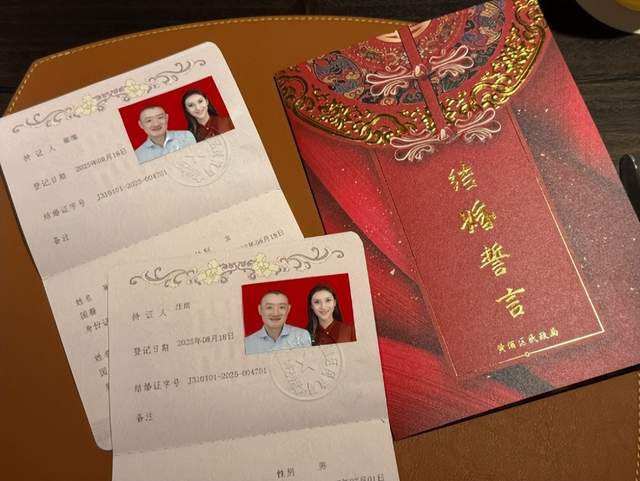 持证人
登记日期 2025年08月18日
结婚证字号 J310101-2025-004701
备注
性别 男
姓名
国籍
身份证
姓名
持证人
登记日期 2025年08月18日
结婚证字号 J310101-2025-004701
备注
性别 男
结婚誓言
黄浦区民政局